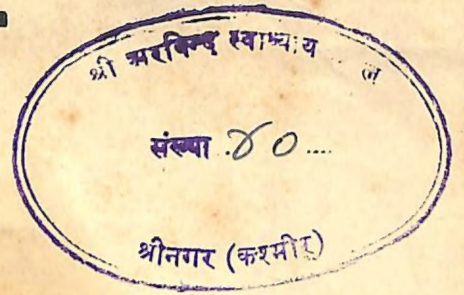 श्री अरविन्द स्वाध्याय
संख्या ४०....
श्रीनगर (कश्मीर)